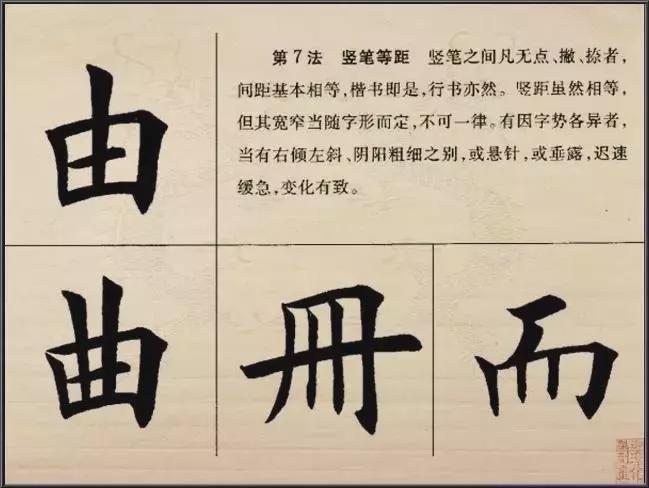 第7法 竖笔等距 竖笔之间凡无点、撇、捺者，
间距基本相等，楷书即是，行书亦然。竖距虽然相等，
但其宽窄当随字形而定，不可一律。有因字势各异者，
当有右倾左斜、阴阳粗细之别，或悬针，或垂露，迟速
缓急，变化有致。
由
曲 冊 而